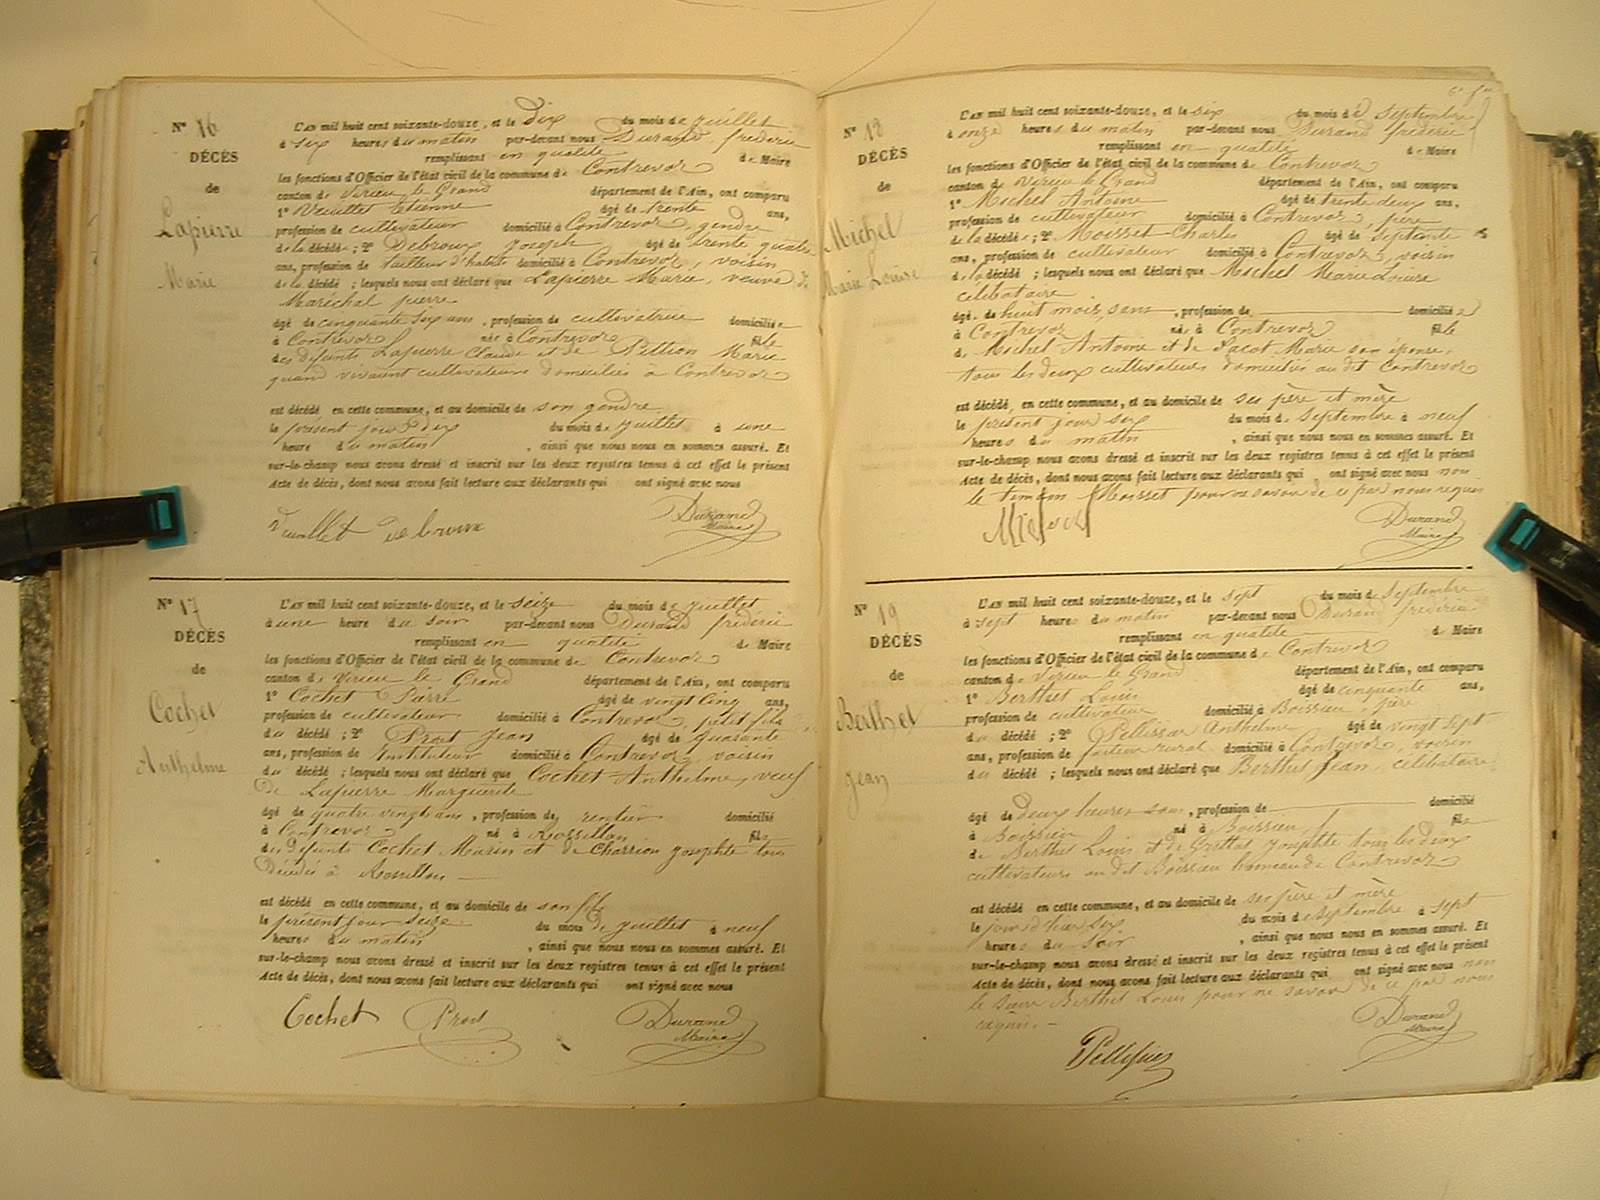 N° 16
DÉCÈS
de
Lapierre
Marie
L'AN mil huit cent soixante-douze, et le dix du mois de juillet
à six heures du matin par-devant nous Durand frédéric
remplissant en qualité de Maire
les fonctions d'Officier de l'état civil de la commune de Contrevoz
canton de Virieu le Grand département de l'Ain, ont comparu
1° Vuillet Etienne âgé de trente ans,
profession de cultivateur domicilié à Contrevoz, gendre
de la décédée ; 2° Debroux Joseph âgé de trente quatre
ans, profession de tailleur d'habits domicilié à Contrevoz, voisin
de la décédé ; lesquels nous ont déclaré que Lapierre Marie, veuve de
Maréchal pierre
âgé de cinquante six ans, profession de cultivatrice domiciliée
à Contrevoz née à Contrevoz fille
des défunts Lapierre Claude et de Pittion Marie
quand vivaient cultivateurs domiciliés à Contrevoz
est décédé en cette commune, et au domicile de son gendre
le présent jour dix du mois de juillet à une
heure du matin, ainsi que nous nous en sommes assuré. Et
sur-le-champ nous avons dressé et inscrit sur les deux registres tenus à cet effet le présent
Acte de décès, dont nous avons fait lecture aux déclarants qui ont signé avec nous
Vuillet Debroux Durand
Maire
N° 17
DÉCÈS
de
Cochet
Anthelme
L'AN mil huit cent soixante-douze, et le seize du mois de juillet
à une heure du soir par-devant nous Durand frédéric
remplissant en qualité de Maire
les fonctions d'Officier de l'état civil de la commune de Contrevoz
canton de Virieu le Grand département de l'Ain, ont comparu
1° Cochet Pierre âgé de vingt cinq ans,
profession de cultivateur domicilié à Contrevoz, petit fils
du décédé ; 2° Prost Jean âgé de quarante
ans, profession de Instituteur domicilié à Contrevoz, voisin
du décédé ; lesquels nous ont déclaré que Cochet Anthelme, veuf
De Lapierre Marguerite
âgé de quatre vingts ans, profession de rentier domicilié
à Contrevoz né à Rossillon fils
des défunts Cochet Marin et de Charrion Josephte tous
Décédés à Rossillon
est décédé en cette commune, et au domicile de son fils
le présent jour seize du mois de juillet à neuf
heures du matin, ainsi que nous nous en sommes assuré. Et
sur-le-champ nous avons dressé et inscrit sur les deux registres tenus à cet effet le présent
Acte de décès, dont nous avons fait lecture aux déclarants qui ont signé avec nous
Cochet Prost Durand
Maire
N° 18
DÉCÈS
de
Michel
Marie Louise
L'AN mil huit cent soixante-douze, et le six du mois de septembre
à onze heures du matin par-devant nous Durand frédéric
remplissant en qualité de Maire
les fonctions d'Officier de l'état civil de la commune de Contrevoz
canton de Virieu le Grand département de l'Ain, ont comparu
1° Michel Antoine âgé de trente deux ans,
profession de cultivateur domicilié à Contrevoz, père
de la décédée ; 2° Moisset Charles âgé de septente
ans, profession de cultivateur domicilié à Contrevoz, voisin
de la décédé ; lesquels nous ont déclaré que Michel Marie Louise
célibataire
âgé de huit mois, sans, profession de domiciliée
à Contrevoz née à Contrevoz fille
de Michel Antoine et de Pacot Marie son épouse,
tous les deux cultivateurs domiciliés au dit Contrevoz
est décédé en cette commune, et au domicile de ses père et mère
le présent jour six du mois de septembre à neuf
heures du matin, ainsi que nous nous en sommes assuré. Et
sur-le-champ nous avons dressé et inscrit sur les deux registres tenus à cet effet le présent
Acte de décès, dont nous avons fait lecture aux déclarants qui ont signé avec nous non
le témoin Moisset pour ne savoir de ce par nous requis
Michel Durand
Maire
N° 19
DÉCÈS
de
Berthet
Jean
L'AN mil huit cent soixante-douze, et le sept du mois de septembre
à sept heures du matin par-devant nous Durand frédéric
remplissant en qualité de Maire
les fonctions d'Officier de l'état civil de la commune de Contrevoz
canton de Virieu le Grand département de l'Ain, ont comparu
1° Berthet Louis âgé de cinquante ans,
profession de cultivateur domicilié à Boissieu père
du décédé ; 2° Pellissier Anthelme âgé de vingt sept
ans, profession de facteur rural domicilié à Contrevoz, voisin
du décédé ; lesquels nous ont déclaré que Berthet Jean, célibataire
âgé de deux heures sans, profession de domicilié
à Boissieu né à Boissieu fils
de Berthet Louis et de Josephte tous les deux
cultivateurs au dit Boissieu hameau de Contrevoz
est décédé en cette commune, et au domicile de ses père et mère
le jour d'hier six du mois de septembre à sept
heures du soir, ainsi que nous nous en sommes assuré. Et
sur-le-champ nous avons dressé et inscrit sur les deux registres tenus à cet effet le présent
Acte de décès, dont nous avons fait lecture aux déclarants qui ont signé avec nous non
le sieur Berthet Louis pour ne savoir de ce par nous
requis. -
Pellissier Durand
Maire